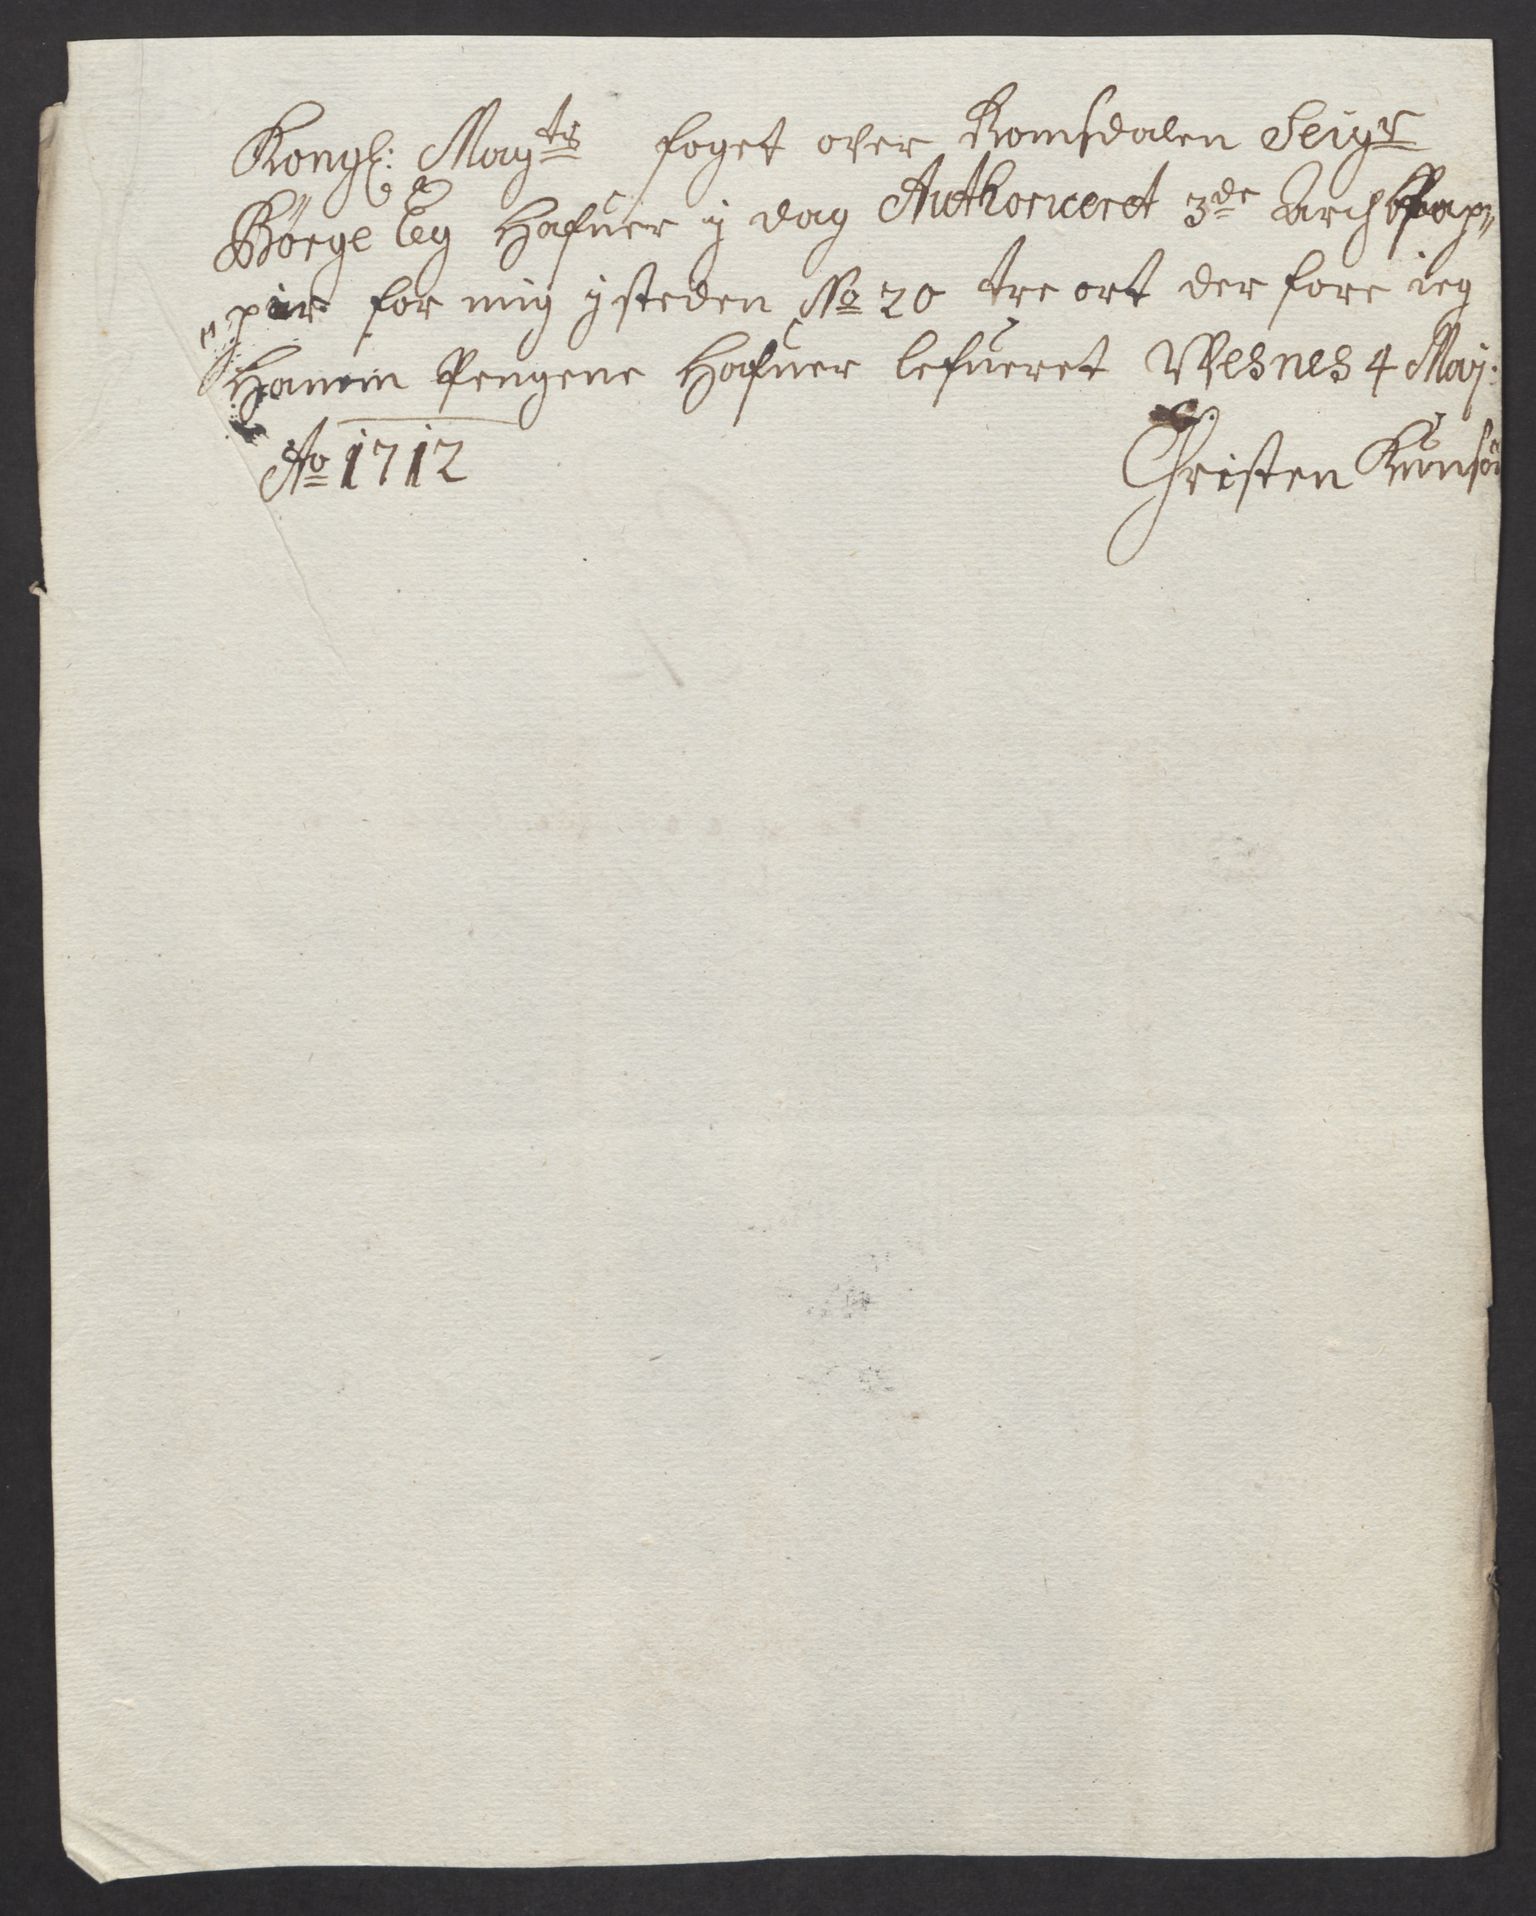 Kongl: May^ts foget over Romsdalen Seig^r
Börge Eeg Hafuer y dag Authoriceret 3^de Arch Pap„
„pir for mig ysteden No 20 tre ort der fore ieg
Hannem Pengene Hafuer lefueret Vesnes 4 Maij:
Ao 1712
Christen